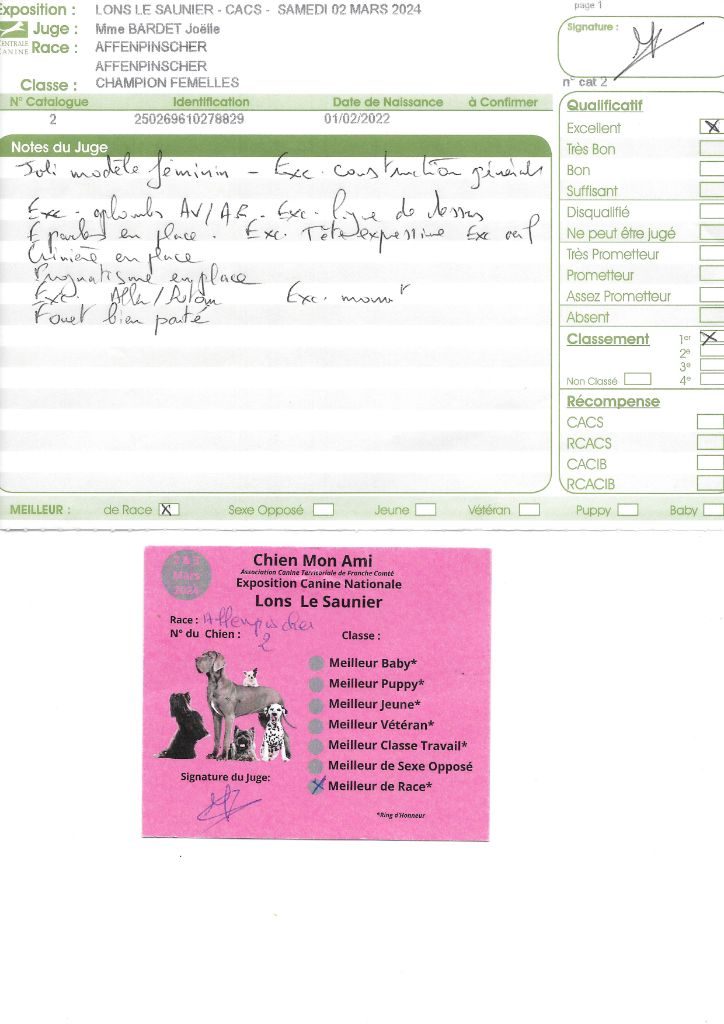 Exposition : LONS LE SAUNIER - CACS - SAMEDI 02 MARS 2024
page 1
CENTRALE CANINE
Juge : Mme BARDET Joëlle
Race : AFFENPINSCHER
AFFENPINSCHER
Classe : CHAMPION FEMELLES
Signature :
n° cat 2
N° Catalogue Identification Date de Naissance à Confirmer
2 250269610278829 01/02/2022
Notes du Juge
Joli modèle féminin - Exc. construction générale
Exc. aplombs AV/AR - Exc. ligne de dessus
en place. Exc. Tête expressive Exc
Crinière en place
Prognatisme en place
Exc. Exc.
Fouet bien porté
Qualificatif
Excellent X
Très Bon
Bon
Suffisant
Disqualifié
Ne peut être jugé
Très Prometteur
Prometteur
Assez Prometteur
Absent
Classement 1er X
2e
3e
Non Classé 4e
Récompense
CACS
RCACS
CACIB
RCACIB
MEILLEUR : de Race X Sexe Opposé Jeune Vétéran Puppy Baby
2 & 3
Mars
2024
Chien Mon Ami
Association Canine Territoriale de Franche Comté
Exposition Canine Nationale
Lons Le Saunier
Race : Affenpinscher
N° du Chien : 2 Classe :
Meilleur Baby*
Meilleur Puppy*
Meilleur Jeune*
Meilleur Vétéran*
Meilleur Classe Travail*
Meilleur de Sexe Opposé
X Meilleur de Race*
Signature du Juge:
*Ring d'Honneur